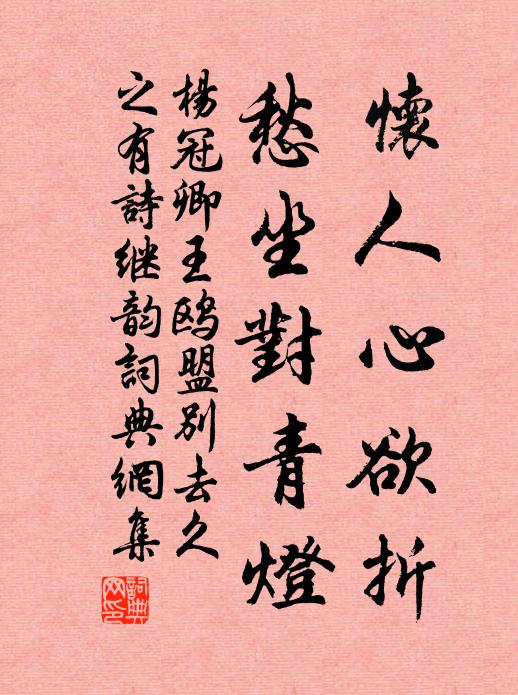 懷人心欲折
愁坐對青燈
楊冠卿王鷗盟別去久
之有詩继韵詞典網集
詞典网印